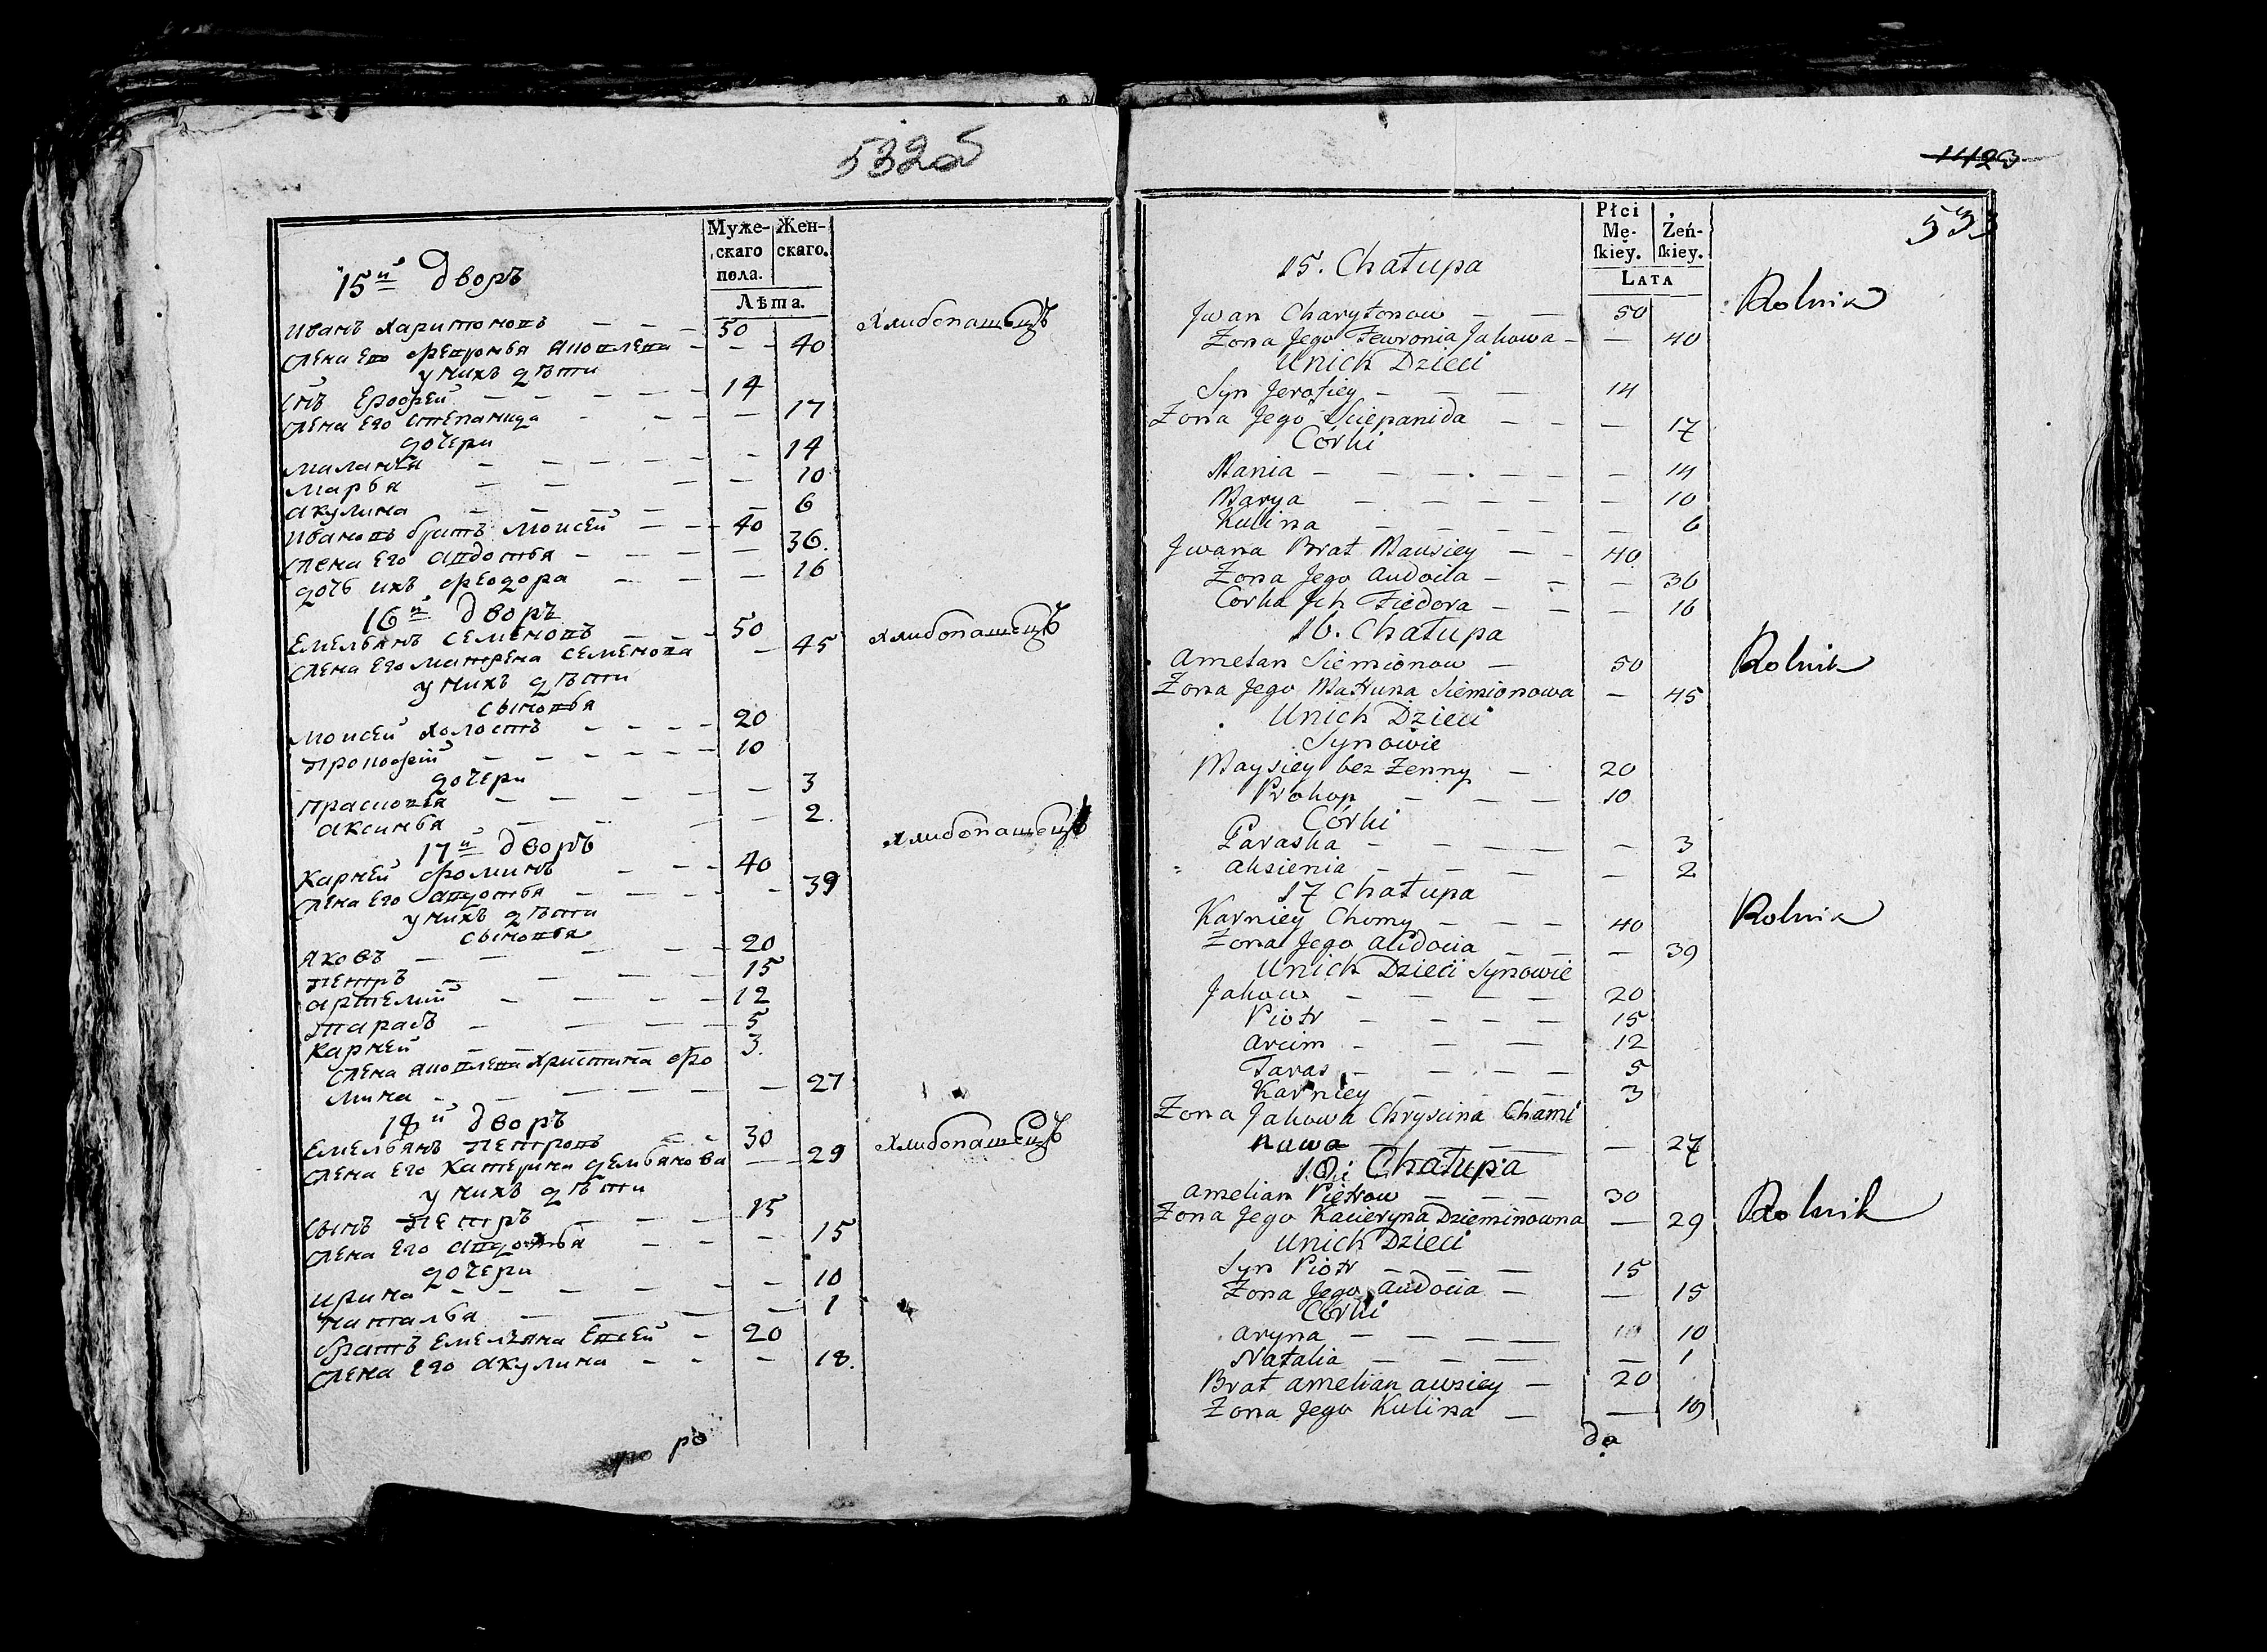 532об
Муже-
скаго
пола.
Жен-
скаго.
Лѣта.
15й дворъ
Иванъ Харитоновъ — — — 50
Хлибопашецъ
жена его Феврониѧ Яковлева — — — 40
у нихъ дѣти
снъ Ерофей — — — — 14
жена его Степанида — — — — 17
дочери
Миланья — — — — — 14
Марья — — — — 10
Акулина — — — — — 6
Ивановъ братъ Моисей — — — 40
жена его Авдотья — — — — 36.
дочь ихъ Феодора — — — 16
16й дворъ
Емельянъ Семеновъ — — — 50
Хлибопашецъ
жена его Матрена Семенова — 45
у нихъ дѣти
сыновья
Моисей холостъ — — — — 20
Прокофій — — — — — 10
дочери
Прасковья — — — — — 3
Аксинья — — — — 2.
17й дворъ
Хлибопашецъ
Карней Фоминъ — — — 40
жена его Авдотья — — — — — 39
у нихъ дѣти
сыновья
Яковъ — — — — — 20
Петръ — — — — 15
Артемій — — — — 12
Тарасъ — — — — 5
Карней — — — — 3.
жена Яковлева Христина Фо
мина — — — — — — 27
18й дворъ
Емельянъ Петровъ — — 30
Хлибопашецъ
жена его Катерина Демьянова — 29
у нихъ дѣти
сынъ Петръ — — — — 15
жена его Авдотья — — — 15
дочери
Ирина — — — — — — 10
Наталья — — — — — 1
братъ Емельяна Евсей — 20
жена его Акулина — — — 18.
ро
1423
533
Płci
Mę-
skiey.
Żeń-
skiey.
LATA
15. Chałupa
Jwan Charytonow — — 50
Rolnik
Zona Jego Fewronia Jakowa — — 40
Unich Dzieci
Syn Jerofiey — — — 14
Zona Jego Sciepanida — — — 17
Córki
Mania — — — — — — 14
Marya — — — — — — 10
Kulina — — — — — 6
Jwana Brat Mausiey — — 40
Zona Jego Audocia — — — 36
Corka Jch Fiedora — — — 16
16. Chałupa
Amelan Siemionow — 50
Rolnik
Zona Jego Matruna Siemionowa — 45
Unich Dzieci
Synowie
Maysiey bez Zenny — 20
Prokop — — — 10
Córki
Paraska — — — — — 3
Aksienia — — — — — 2
17 Chałupa
Karniey Chomy — — — 40
Rolnik
Zona Jego Audocia — — — 39
Unich Dzieci Synowie
Jakow — — — — 20
Piotr — — — — 15
Arcim — — — 12
Taras — — — — 5
Karniey — — — 3
Zona Jakowa Chryscina Chami
nowa — — — — 27
18. Chałupa
Amelian Pietrow — — — 30
Rolnik
Zona Jego Kacieryna Dzieminowna — 29
Unich Dzieci
Syn Piotr — — — 15
Zona Jego Audocia — — 15
Córki
Aryna — — — — 10
Natalia — — — — 1
Brat Amelian Ausiey — 20
Zona Jego Kulina — — 18
da